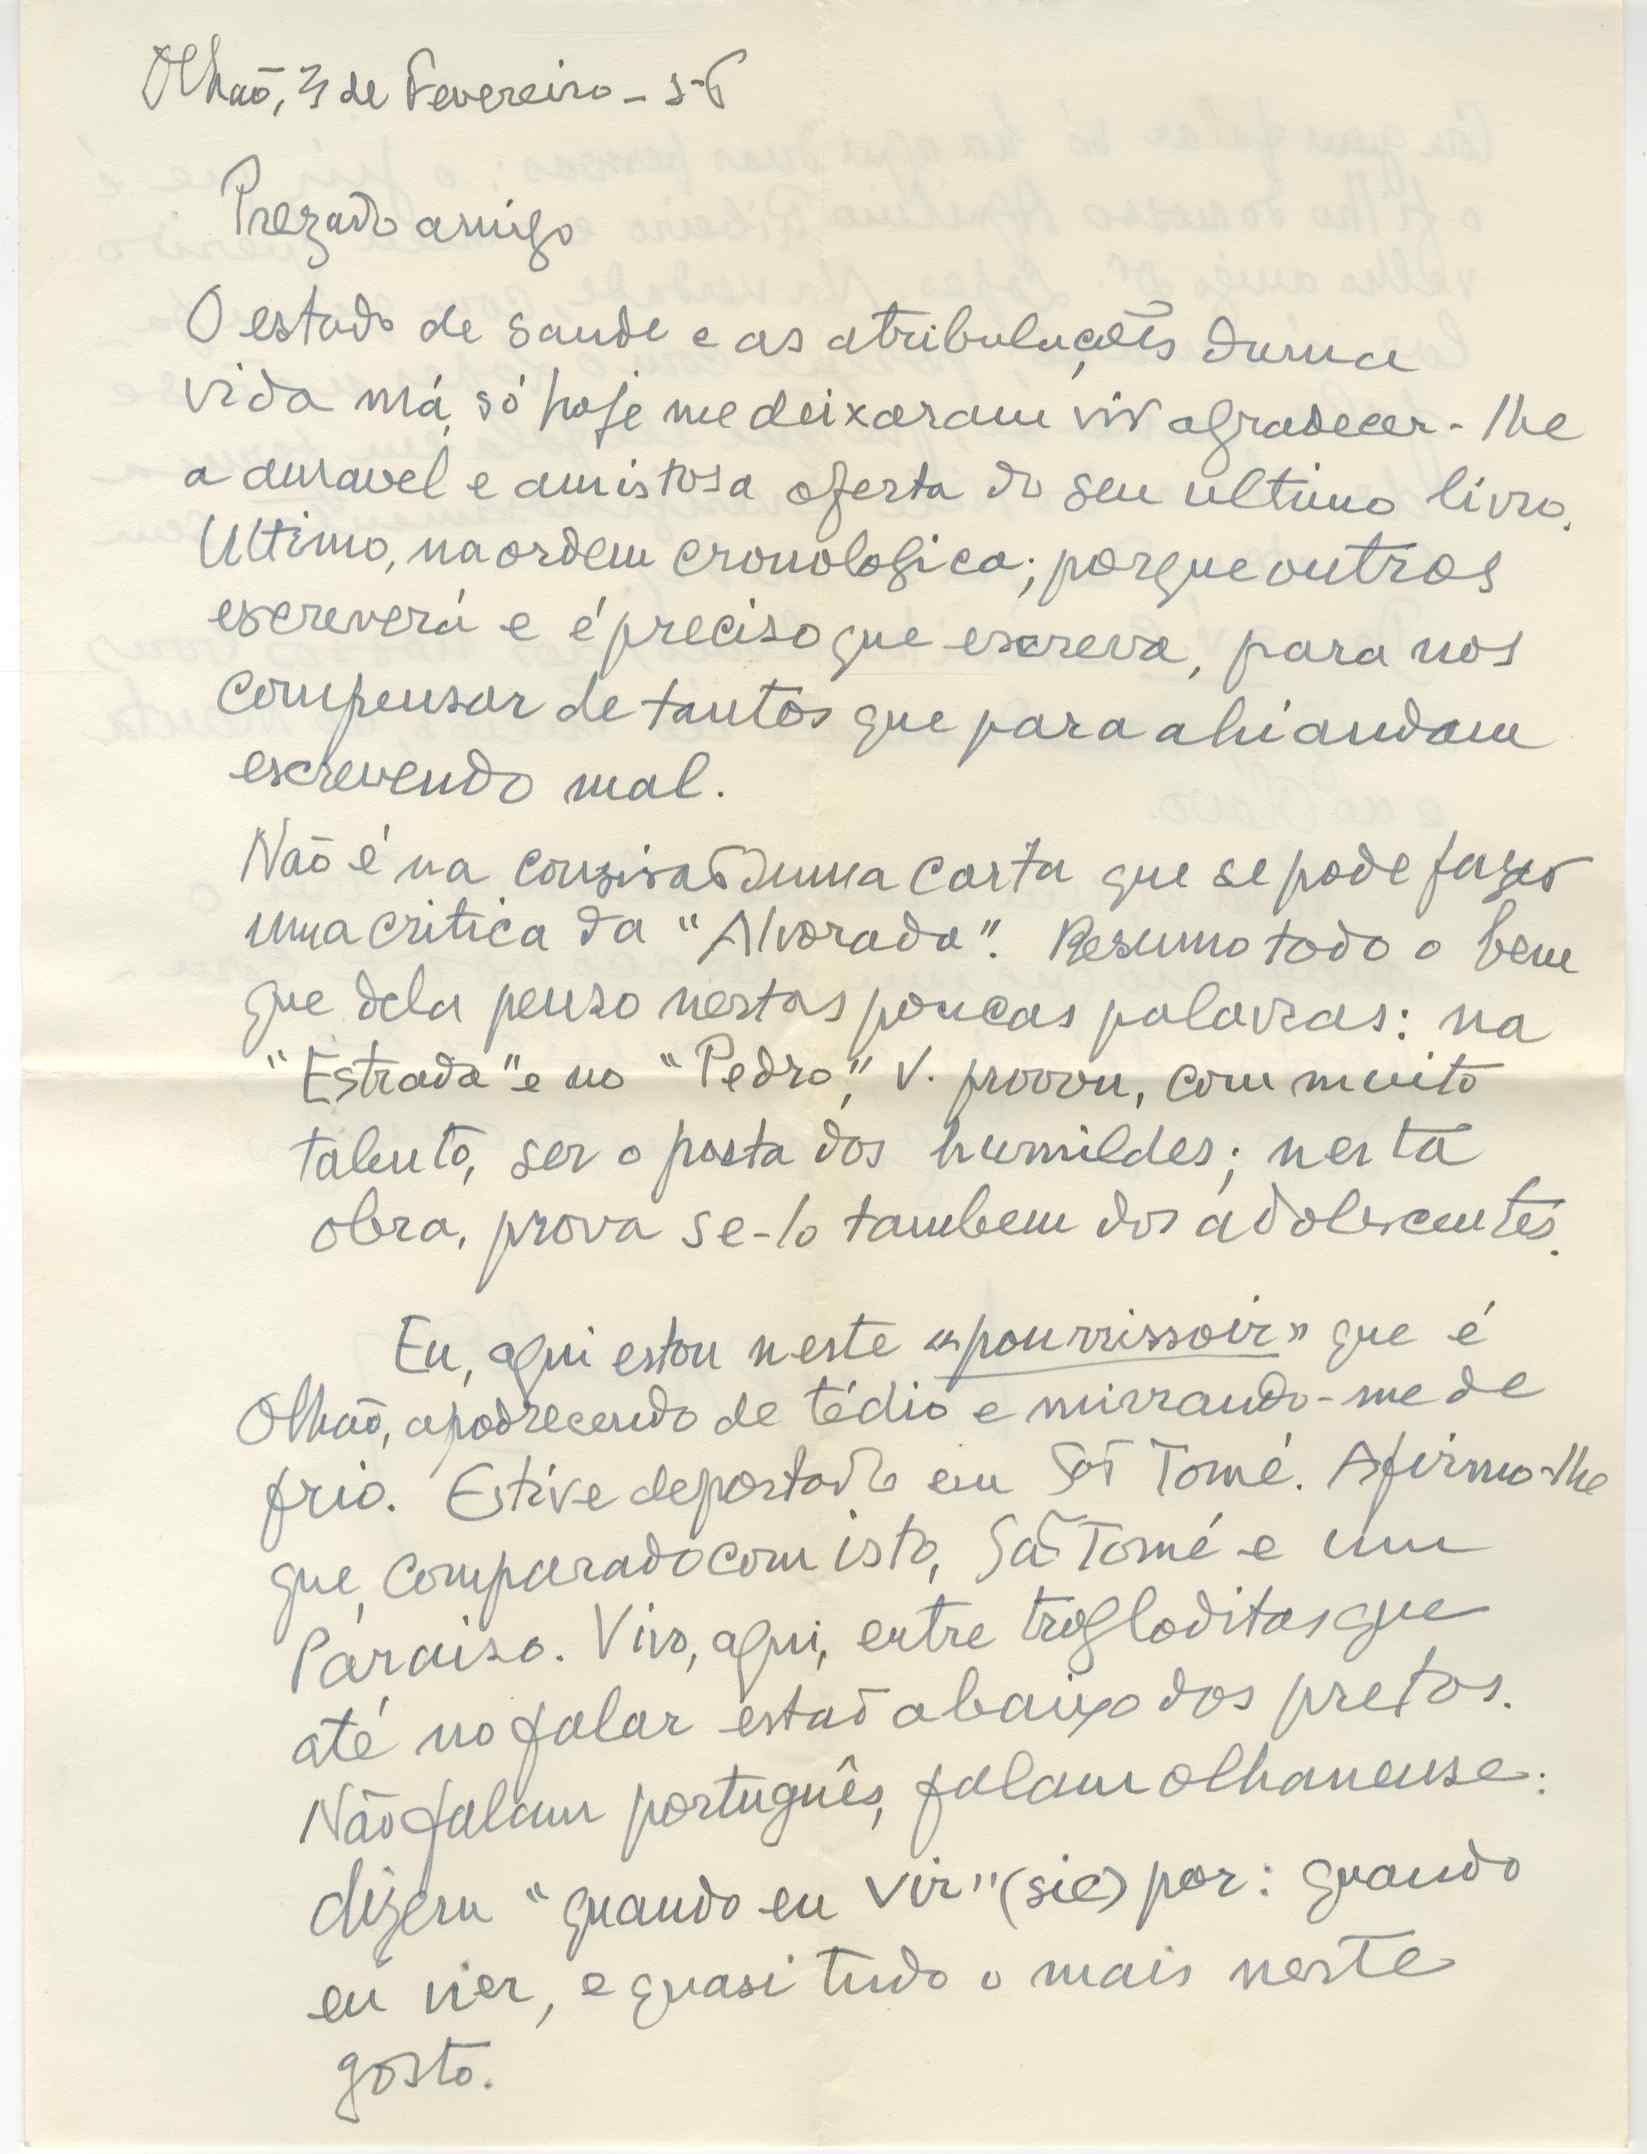 Olhão, 3 de Fevereiro - 56
Prezado amigo
O estado de saude e as atribulações duma
vida má, só hoje me deixaram vir agradecer-lhe
a amavel e amistosa oferta do seu ultimo livro.
Ultimo, na ordem cronologica; porque outros
escreverá e é preciso que escreva, para nos
compensar de tantos que para ahi andam
escrevendo mal.
Não é na concisão duma carta que se pode fazer
uma critica da "Alvorada". Resumo todo o bem
que dela penso nestas poucas palavras: na
"Estrada" e no "Pedro", V. provou, com muito
talento, ser o poeta dos humildes; nesta
obra, prova se-lo tambem dos adolescentes.
Eu, aqui estou neste «pourrissoir» que é
Olhão, apodrecendo de tédio e mirrando-me de
frio. Estive deportado em São Tomé. Afirmo-lhe
que, comparado com isto, São Tomé e um
Paraiso. Vivo, aqui, entre trogloditas que
até no falar estão abaixo dos pretos.
Não falam português, falam olhanense:
dizem "quando eu vir" (sic) por: quando
eu vier, e quasi tudo o mais neste
gosto.